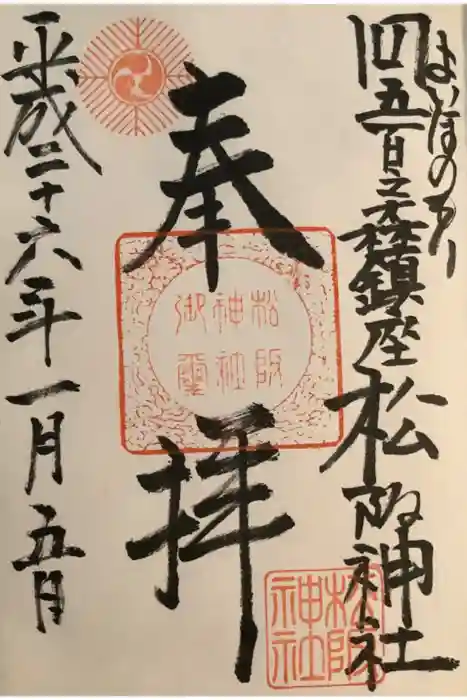 よいほのもり
四五百之森鎮座松阪神社
奉拝
松阪
神社
御璽
松阪
神社
平成二十六年一月五日